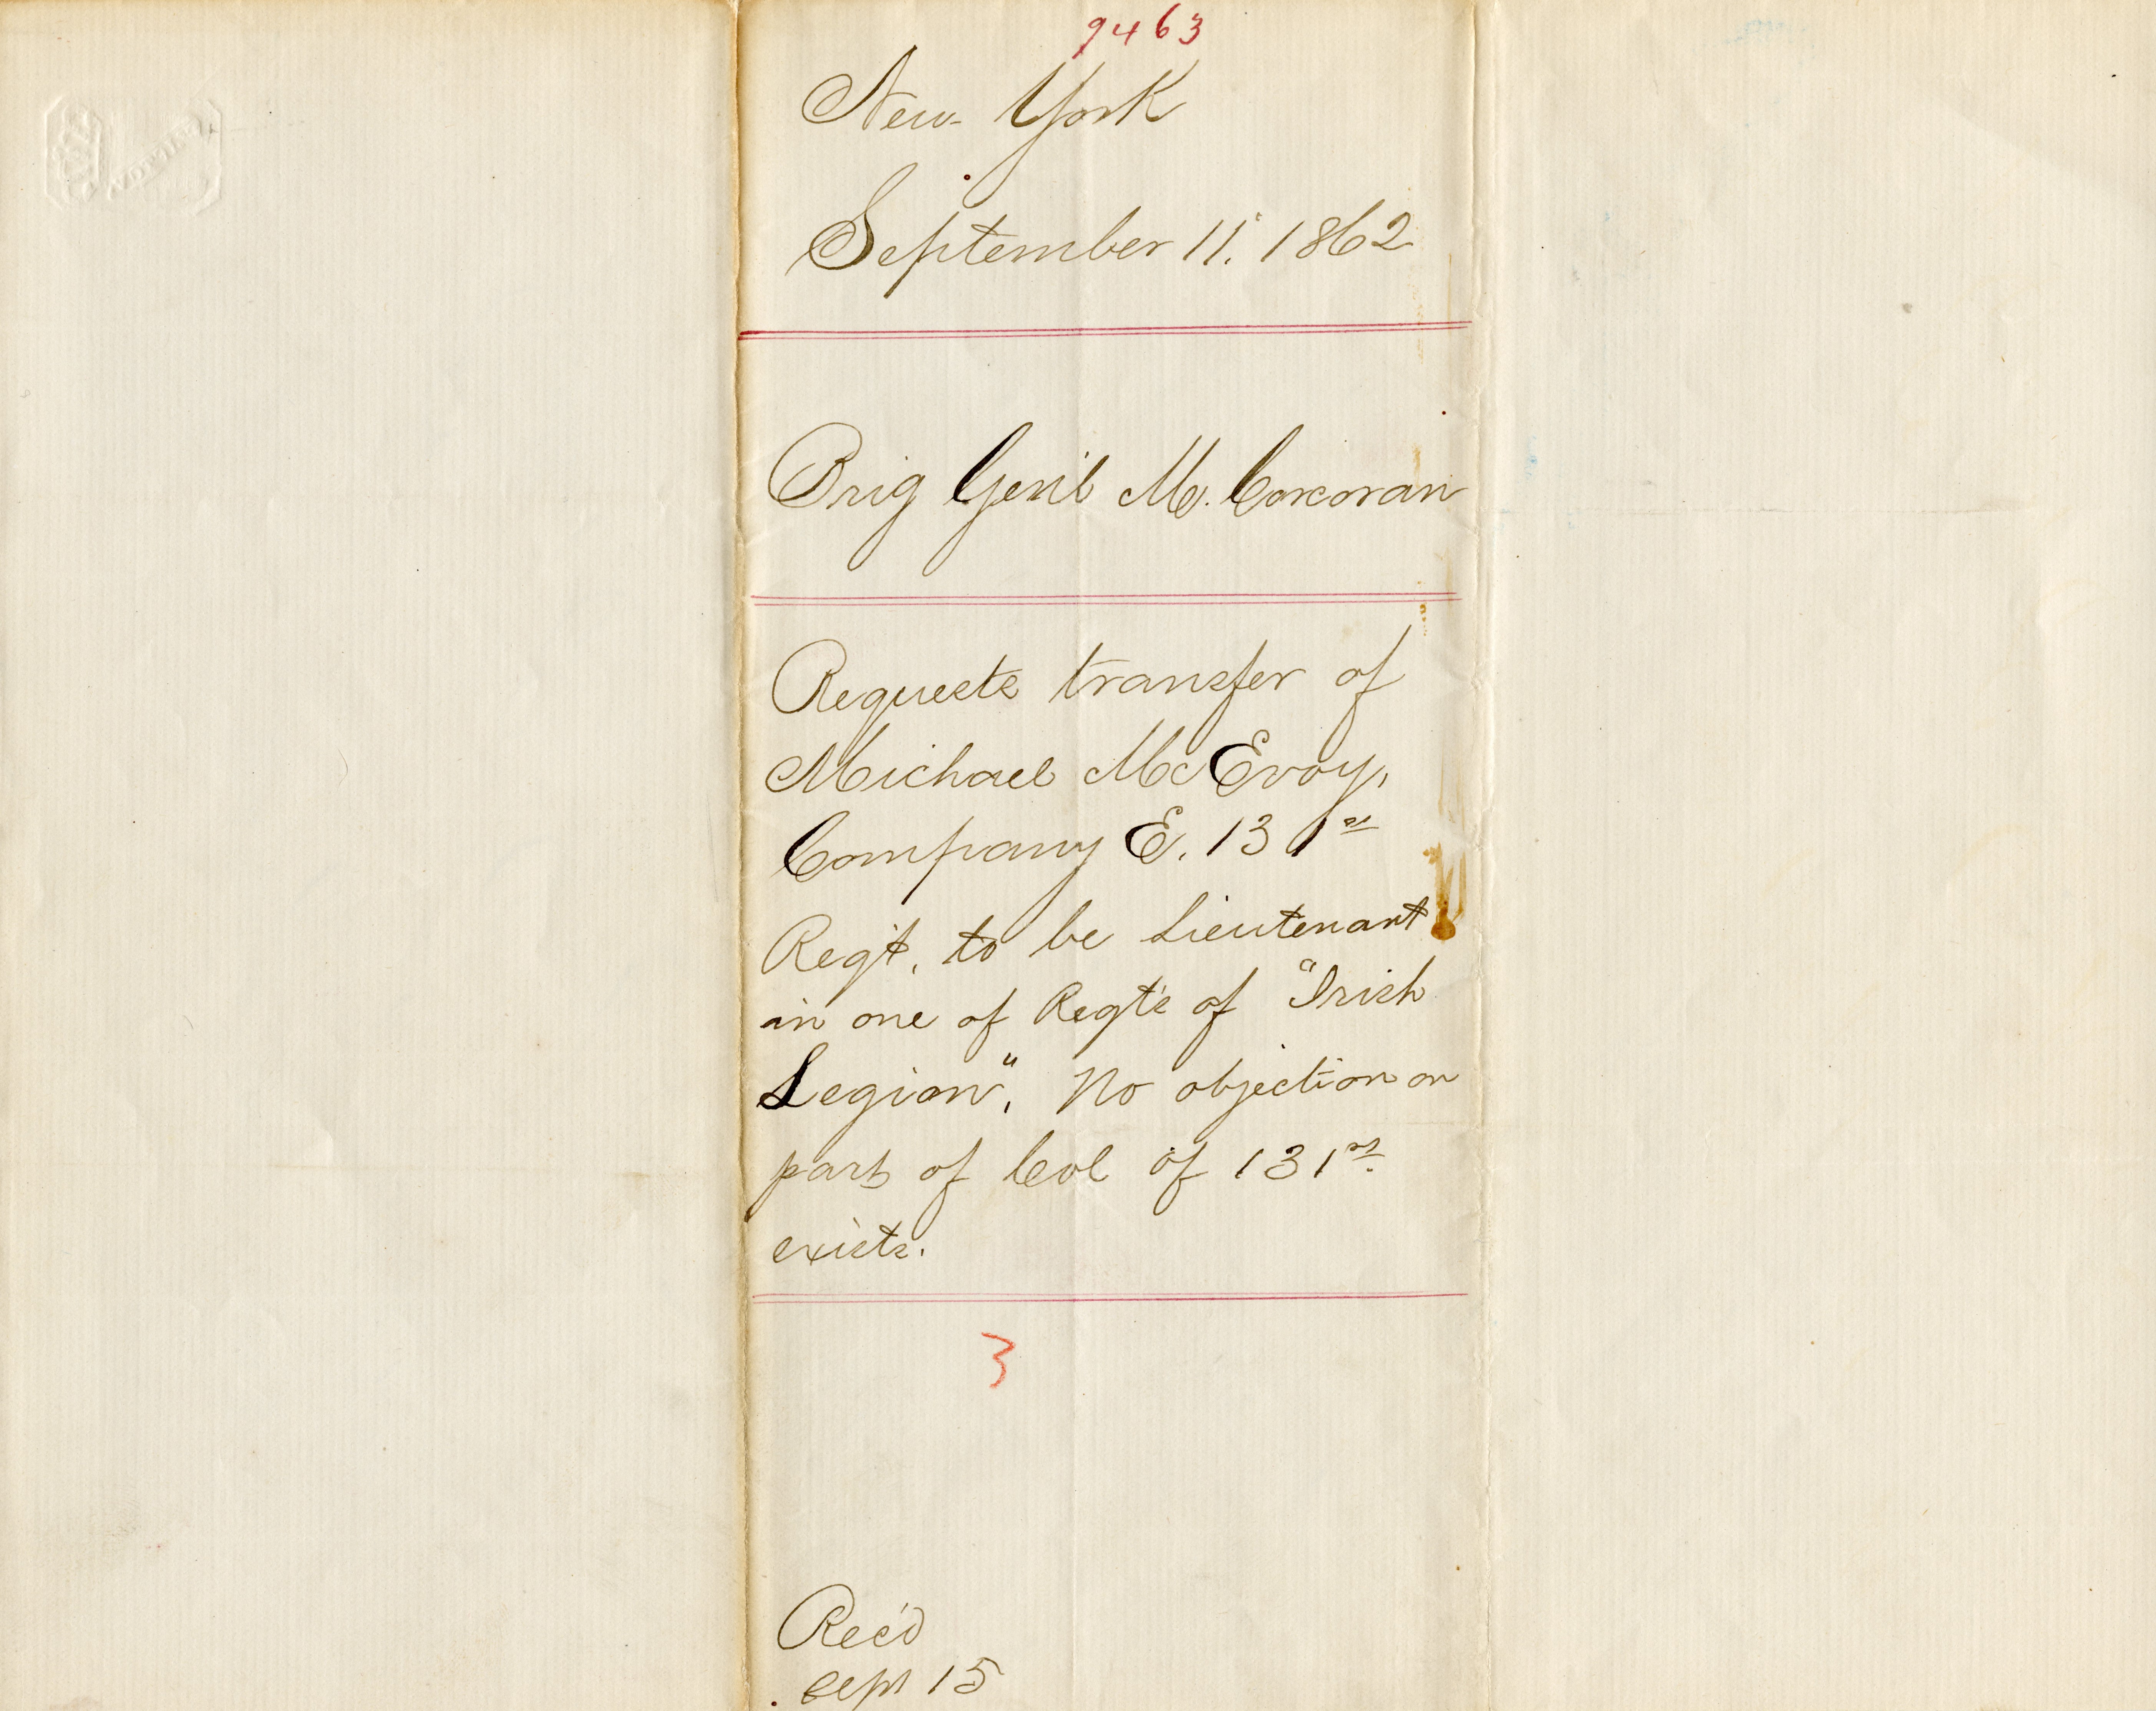 9463
New York
September 11. 1862
Brig Gen'l M. Corcoran
Requests transfer of
Michael McEvoy,
Company E. 131st
Reg't, to be Lieutenant
in one of Regt's of "Irish
Legion". No objection on
part of Col of 131st
exists.
3
Rec'd
Sept 15